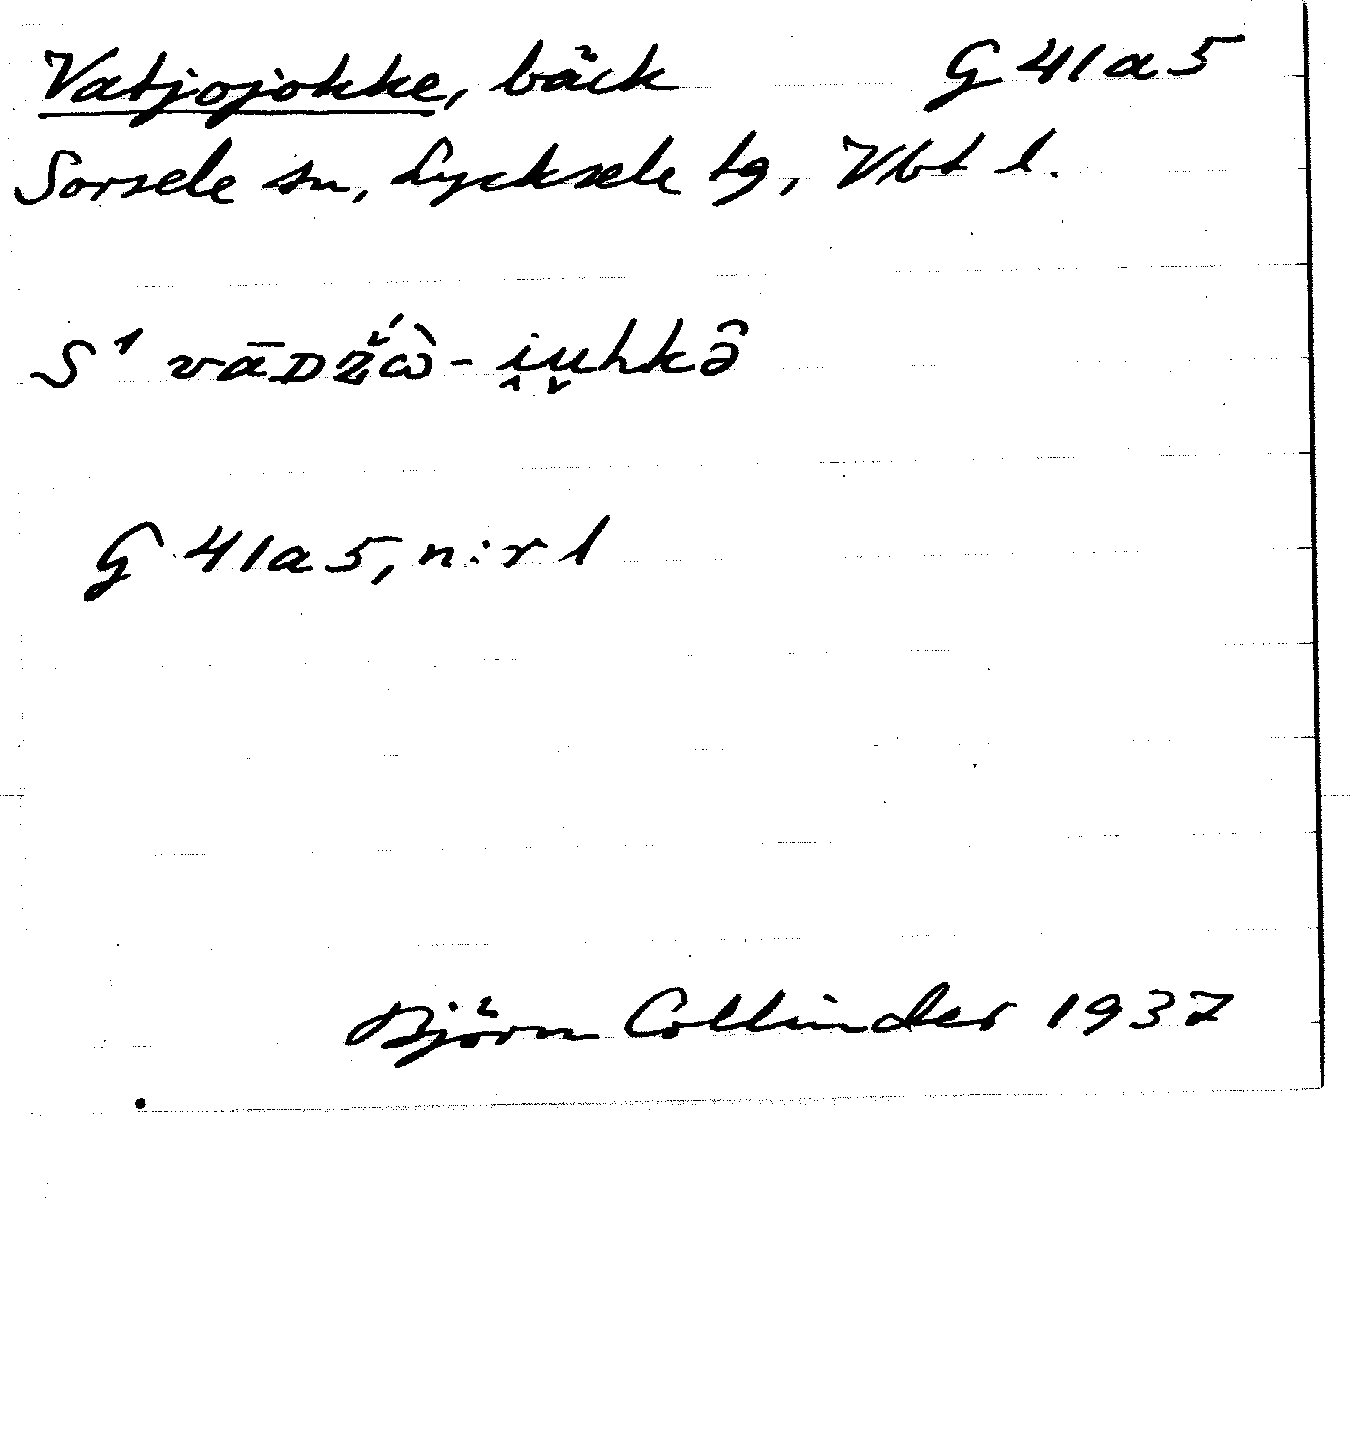 Vatjojokke, bäck G 41 a 5
Sorsele sn, Lycksele tg, Vbt l.
S¹ vāᴅž́ὼ - i̭u̬hkə̑
G 41 a 5, n:r 1
Björn Collinder 1937